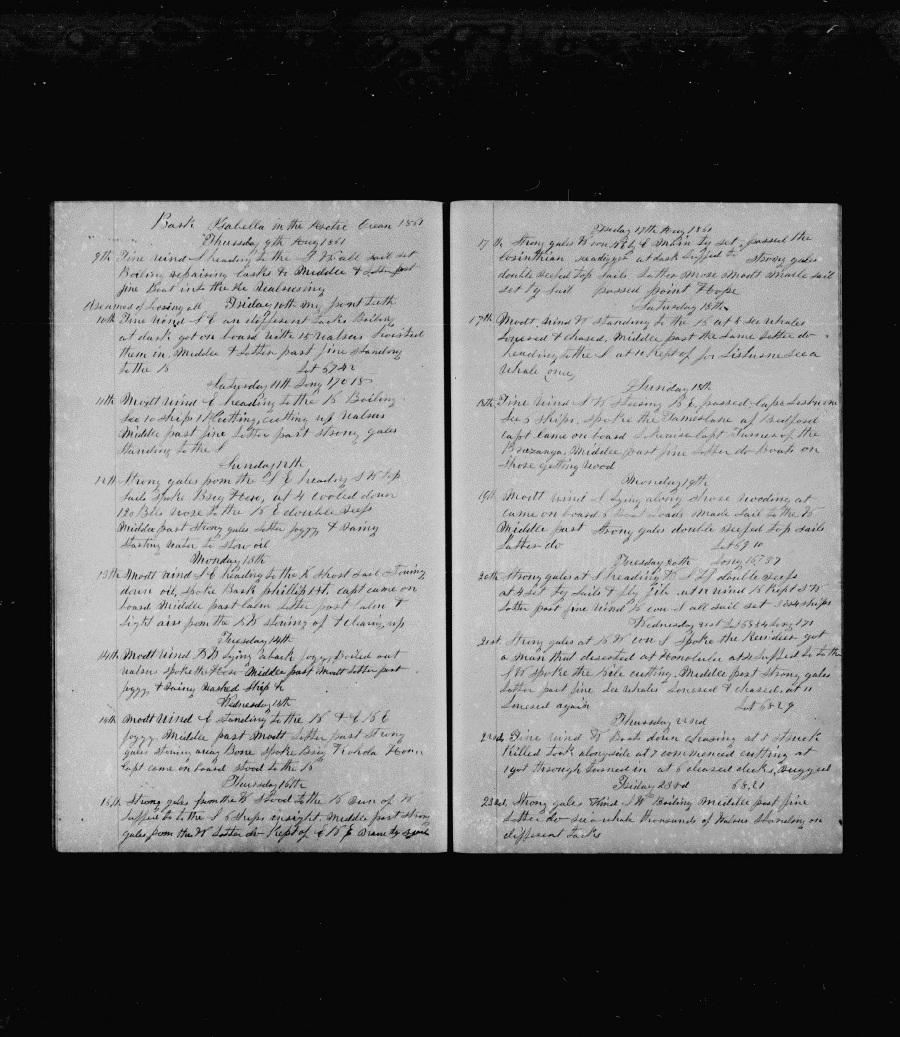 Bark Isabella in the Arctic Ocean 1861
Thursday 9th Aug 1861
9th Fine wind S heading to the S W all sail set
Boiling repairing casks &c Middle & Latter part
fine Boat into the Walrusing
Dreamed of Loosing all Friday 10th my front teeth
10th Fine wind S E on different tacks Boiling
at dark got on board with 15 walrus hoisted
them in. Middle & Latter part fine Standing
to the N Lat 67 42
Saturday 11th Long 170 15
11th Modt wind E heading to the N Boiling
See 10 Ships 1 Cutting, cutting up walrus
Middle part fine Latter part strong gales
Standing to the S
Sunday 12th
12th Strong gales from the S E heading S W top
Sails Spoke Brig at 4 cooled down
120 Bbls wore to the N E double reefs
Middle part Strong gales Latter foggy & rainy
Starting water to Stow oil
Monday 13th
13th Modt wind S E heading to the N Short Sail Stowing
down oil, Spoke Bark Phillip 1st, capt came on
board Middle part calm Latter part calm &
light airs from the N W Stowing of & clearing up
Tuesday 14th
14th Modt wind lying aback foggy, Boiled out
walrus spoke the Middle part Modt Latter part
foggy & rainy washed Ship &c
Wednesday 15th
14th Modt wind E Standing to the N & E N E
foggy, Middle part Modt Latter part Strong
gales stowing away Bone Spoke Brig Kohola
Capt came on board Stood to the N
Thursday 16th
16th Strong gales from the N Stood to the N Run of W
Luffed to to the S 5 Ships in sight. Middle part Strong
gales from the W Latter do Kept of E N E
Friday 17th Aug 1861
17th Strong gales W Main ty set, passed the
Corinthian at dark Luffed to Strong gales
double reefed top Sails Latter more Modt Made Sail
set ty Sail passed point Hope
Saturday 18th
17th Modt, wind W standing to the N at 6 see whales
Lowered & chased, Middle part the Same Latter do
heading to the S at 11 Kept of for Lisburne see a
whale once
Sunday 18th
18th Fine wind S W Steering N E, passed Cape Lisburne
See 5 Ships, Spoke the Tamerlane of Bedford
Capt came on board & Capt Turner of the
Braganza, Middle part fine Latter do Boats on
Shore getting wood
Monday 19th
19th Modt wind S lying along Shore wooding at
came on board 5 Boat Loads Made Sail to the N
Middle part Strong gales double reefed top Sails
Latter do Lat 69 10
Tuesday 20th Long 167 37
20th Strong gales at S heading W double reefs
at 4 Set ty Sails & fly jib wind N Kept S W
Latter part fine wind N all sail set 3 Ships
Wednesday 21st
21st Strong gales at N W Spoke the Reindeer got
a man that deserted at Honolulu at 4 Luffed to to the
S W Spoke the Nile cutting, Middle part Strong gales
Latter part fine See whales Lowered & chased, at 11
Lowered again Lat 68 29
Thursday 22nd
22nd Fine wind W Boats down chasing at 5 Struck
Killed took alongside at 7 commenced cutting at
1 got through turned in at 6 cleared decks,
Friday 23rd 68.21
23rd Strong gales wind S W Boiling Middle part fine
Latter do see a whale thousands of walrus Standing on
different tacks